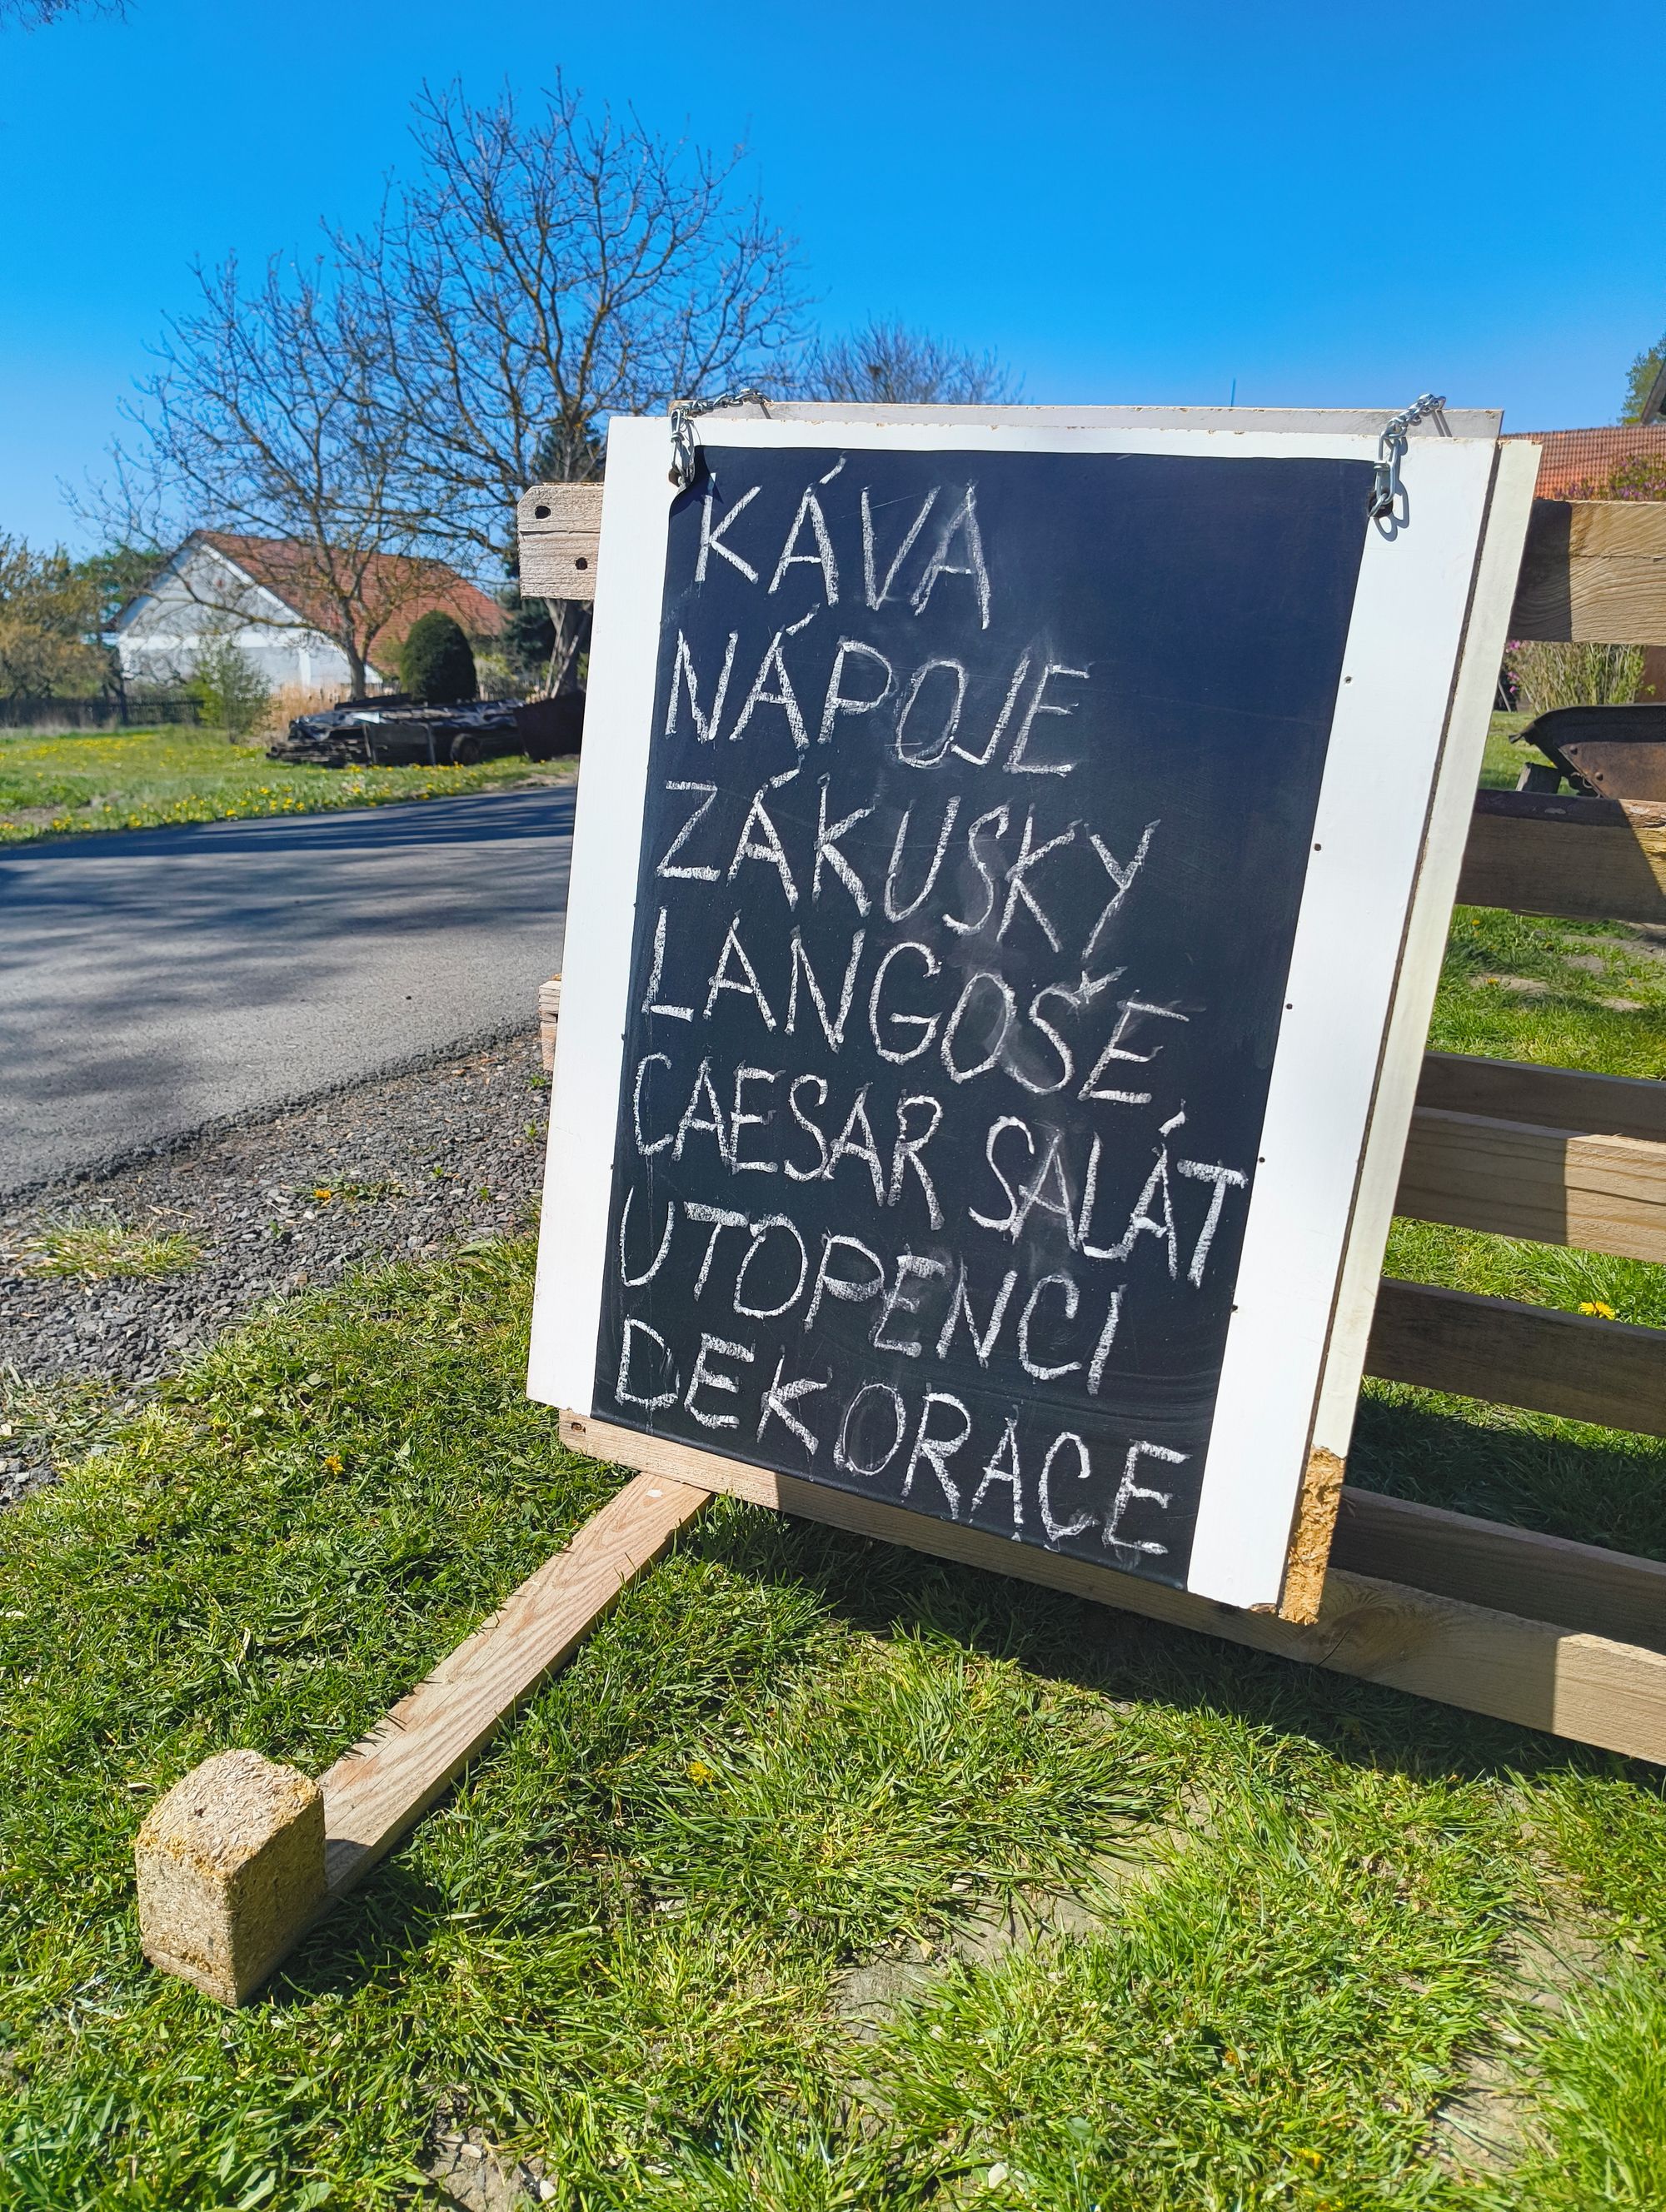 KÁVA
NÁPOJE
ZÁKUSKY
LANGOŠE
CAESAR SALÁT
UTOPENCI
DEKORACE